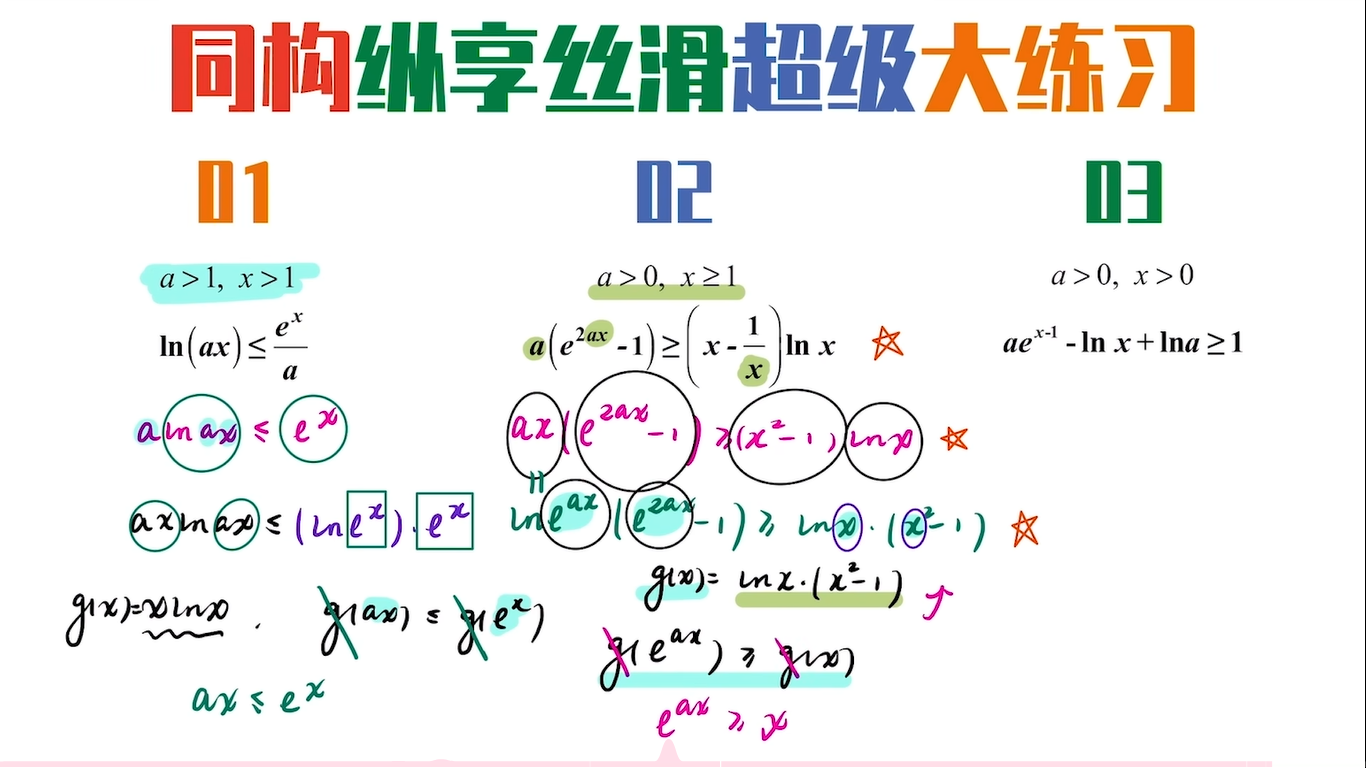 同构纵享丝滑超级大练习
01
a > 1, x > 1
ln(ax) ≤ e^x / a
a ln ax ≤ e^x
ax ln ax ≤ (ln e^x) · e^x
g(x) = x ln x . g(ax) ≤ g(e^x)
ax ≤ e^x
02
a > 0, x ≥ 1
a(e^{2ax} - 1) ≥ (x - 1/x) ln x
ax(e^{2ax} - 1) ≥ (x² - 1) ln x
ln e^{ax} (e^{2ax} - 1) ≥ ln x · (x² - 1)
g(x) = ln x · (x² - 1) ↑
g(e^{ax}) ≥ g(x)
e^{ax} ≥ x
03
a > 0, x > 0
ae^{x-1} - ln x + ln a ≥ 1